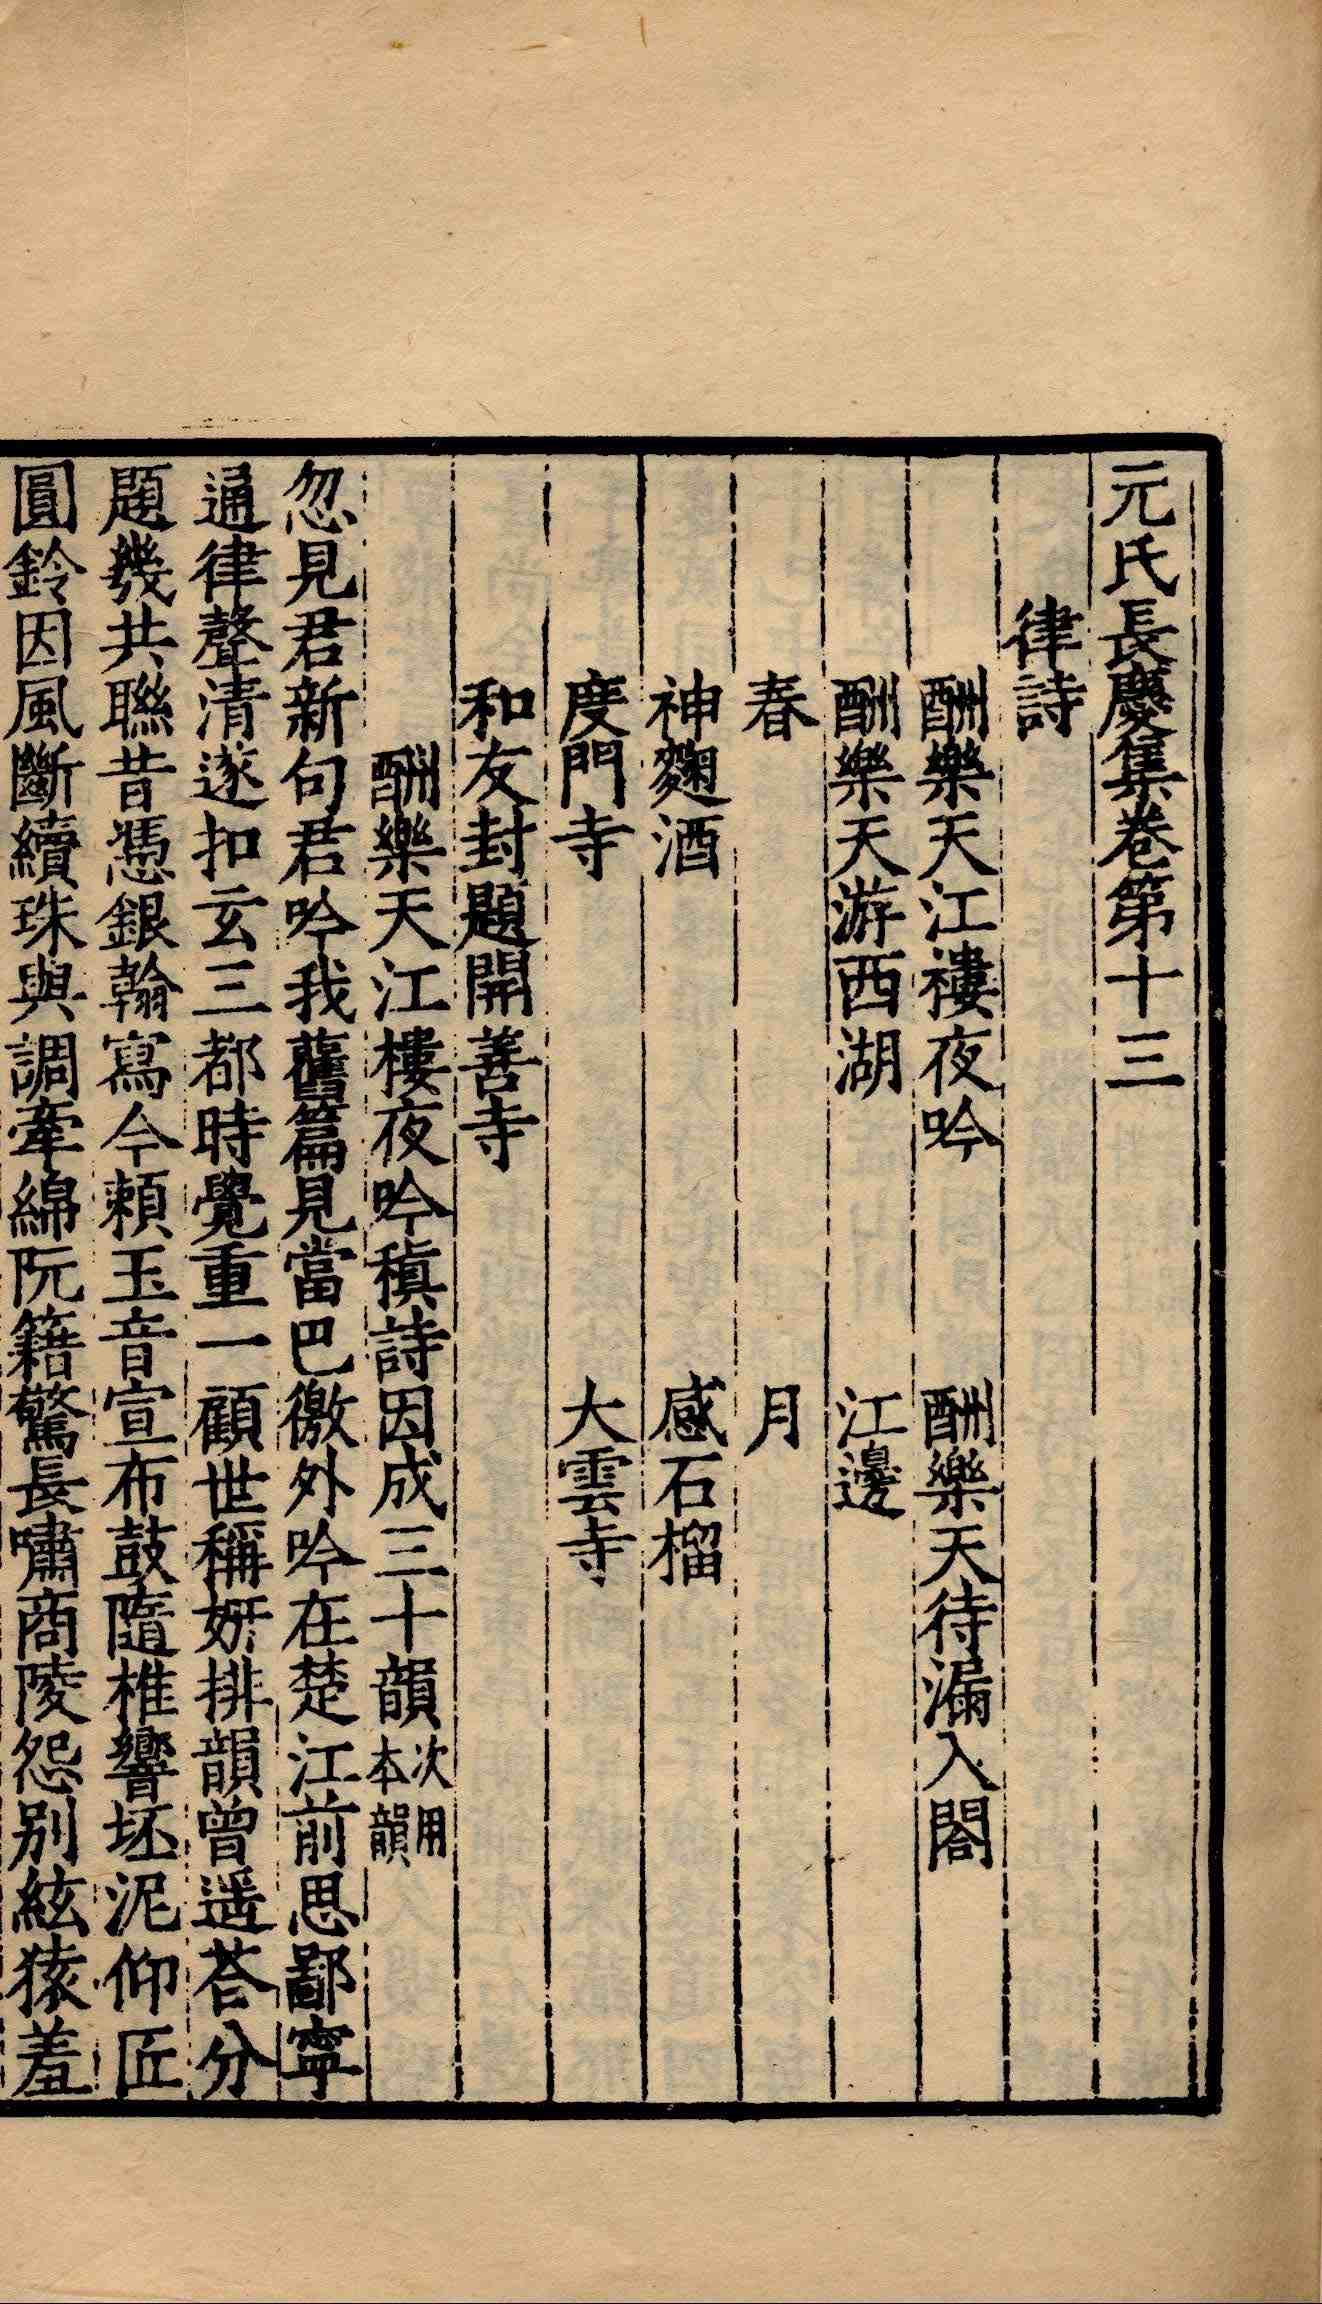 元氏長慶集卷第十三
律詩
酬樂天江樓夜吟　酬樂天待漏入閤
酬樂天游西湖　江邊
春　月
神麴酒　感石榴
度門寺　大雲寺
和友封題開善寺
酬樂天江樓夜吟稹詩因成三十韻次用本韻
忽見君新句君吟我舊篇見當巴徼外吟在楚江前思鄙寧
通律聲清遂扣玄三都時覺重一顧世稱妍排韻曾遥荅分
題幾共聯昔憑銀翰寫今賴玉音宣布鼓隨椎響坯泥仰匠
圓鈴因風斷續珠與調牽綿阮籍驚長嘯商陵怨别絃猿羞